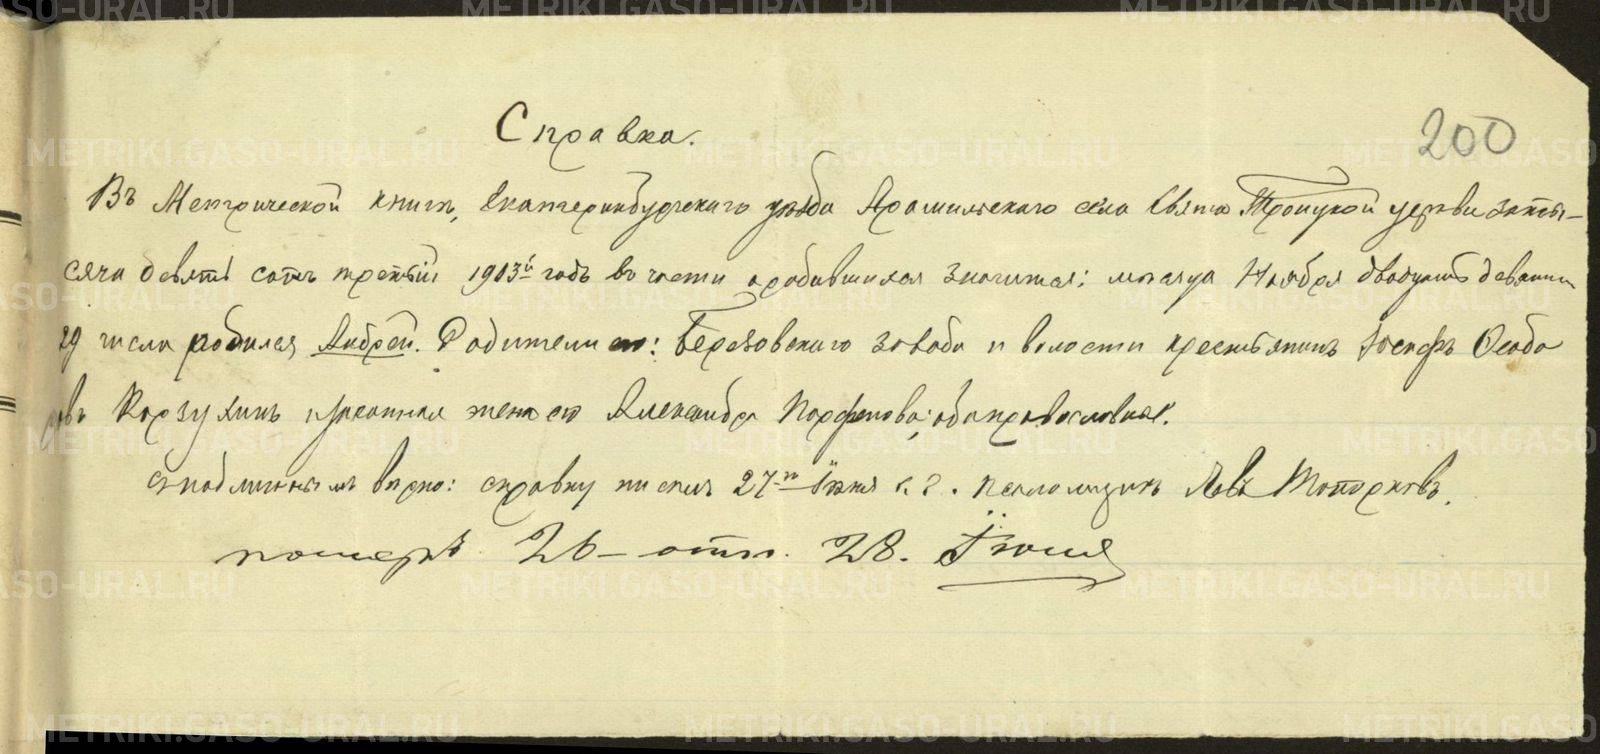 200
Справка.
Въ Метрической книгѣ, Екатеринбургскаго уѣзда Арамильскаго села Свято Троицкой церкви за ты-
сяча девять сотъ третій 1903й годъ въ части о родившихся значится: мѣсяца Ноября двадцать девятаго
29 числа родился Андрей. Родители его: Березовскаго завода и волости крестьянинъ Іосифъ
Корзухинъ и законная жена его Александра Парфенова; оба православные.
Съ подлиннымъ вѣрно: справку писалъ 27го Іюня с. г. псаломщикъ Левъ Топорковъ.
померъ 26 – отп. 28. Іюля
METRIKI.GASO-URAL.RU